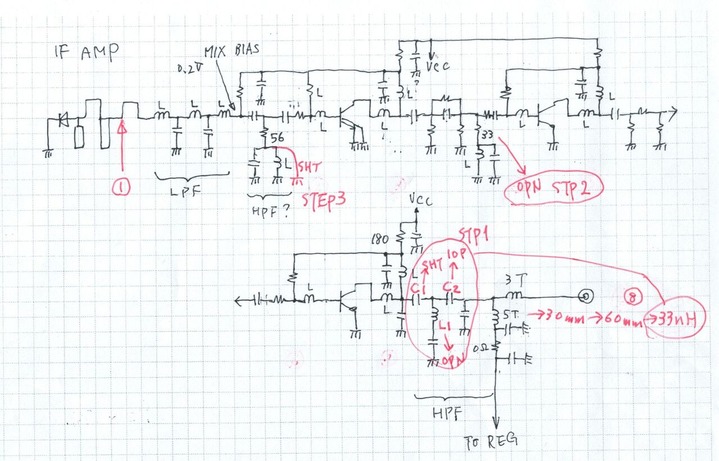 IF AMP
MIX BIAS
0.2V
Vcc
?
L
L
L
L
L
L
L
L
L
L
56
33
①
LPF
L
SHT
L
HPF?
STEP3
OPN STP2
Vcc
STP1
180
SHT 10P
L
C1
C2
3T
L
L
L1
5T
→30mm→60mm→33nH
⑧
0Ω
OPN
HPF
TO REG